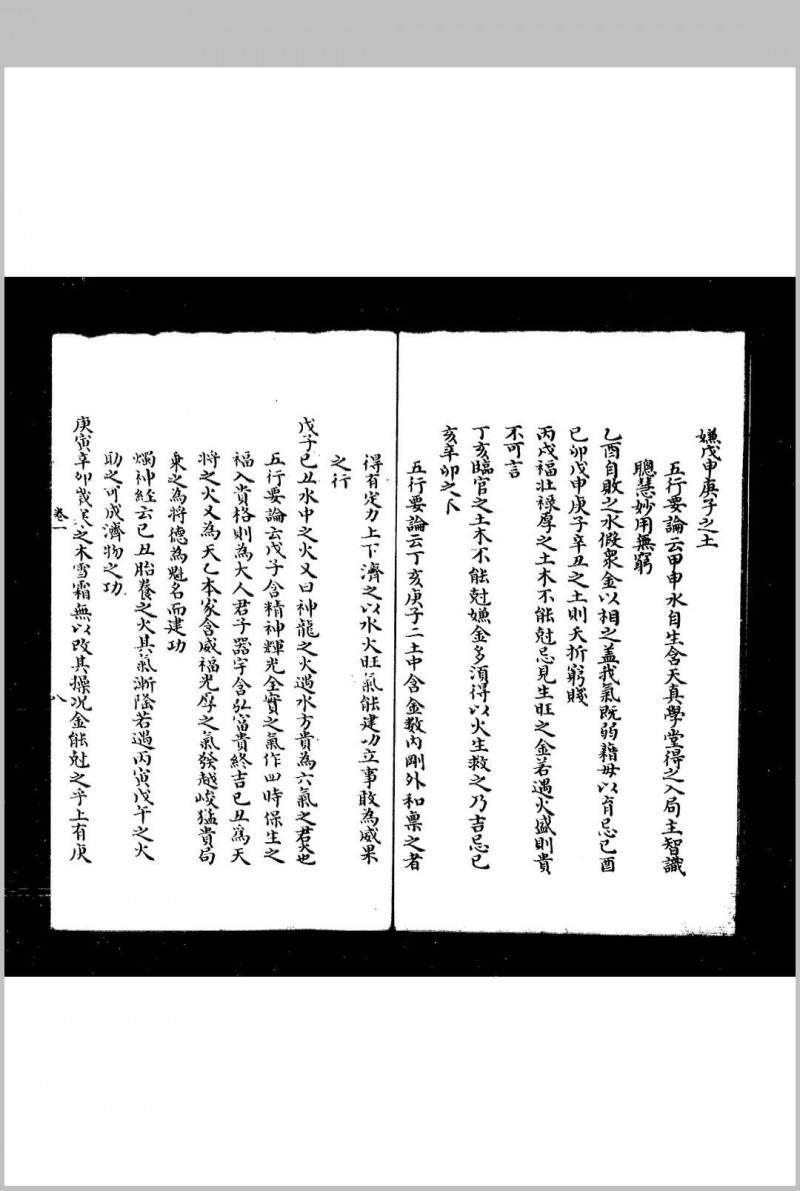 嫌戊申庚子之土
五行要論云甲申水自生含天真學堂得之入局主智識
聰慧妙用無窮
乙酉自敗之水假衆金以相之盖我氣既弱藉母以育忌己酉
己卯戊申庚子辛丑之土則夭折窮賤
丙戌福壯祿厚之土木不能尅忌見生旺之金若遇火盛則貴
不可言
丁亥臨官之土木不能尅嫌金多湏得以火生救之乃吉忌己
亥辛卯之
五行要論云丁亥庚子二土中含金數內剛外和禀之者
得有定力上下濟之以水火旺氣能建功立事敢為威果
之行
戊子己丑水中之火又曰神龍之火遇水方貴為六氣之君火也
五行要論云戊子含精神輝光全實之氣作四時保生之
福入貴格則為大人君子器宇含弘富貴終吉己丑為天
將之火又為天乙本家含威福光厚之氣發越峻猛貴局
乗之為將德為魁名而建功
燭神經云己丑胎養之火其氣漸隆若遇丙寅戊午之火
助之可成濟物之功
庚寅辛卯歲寒之木雪霜無以改其操况金能尅之乎上有庚
卷一
八